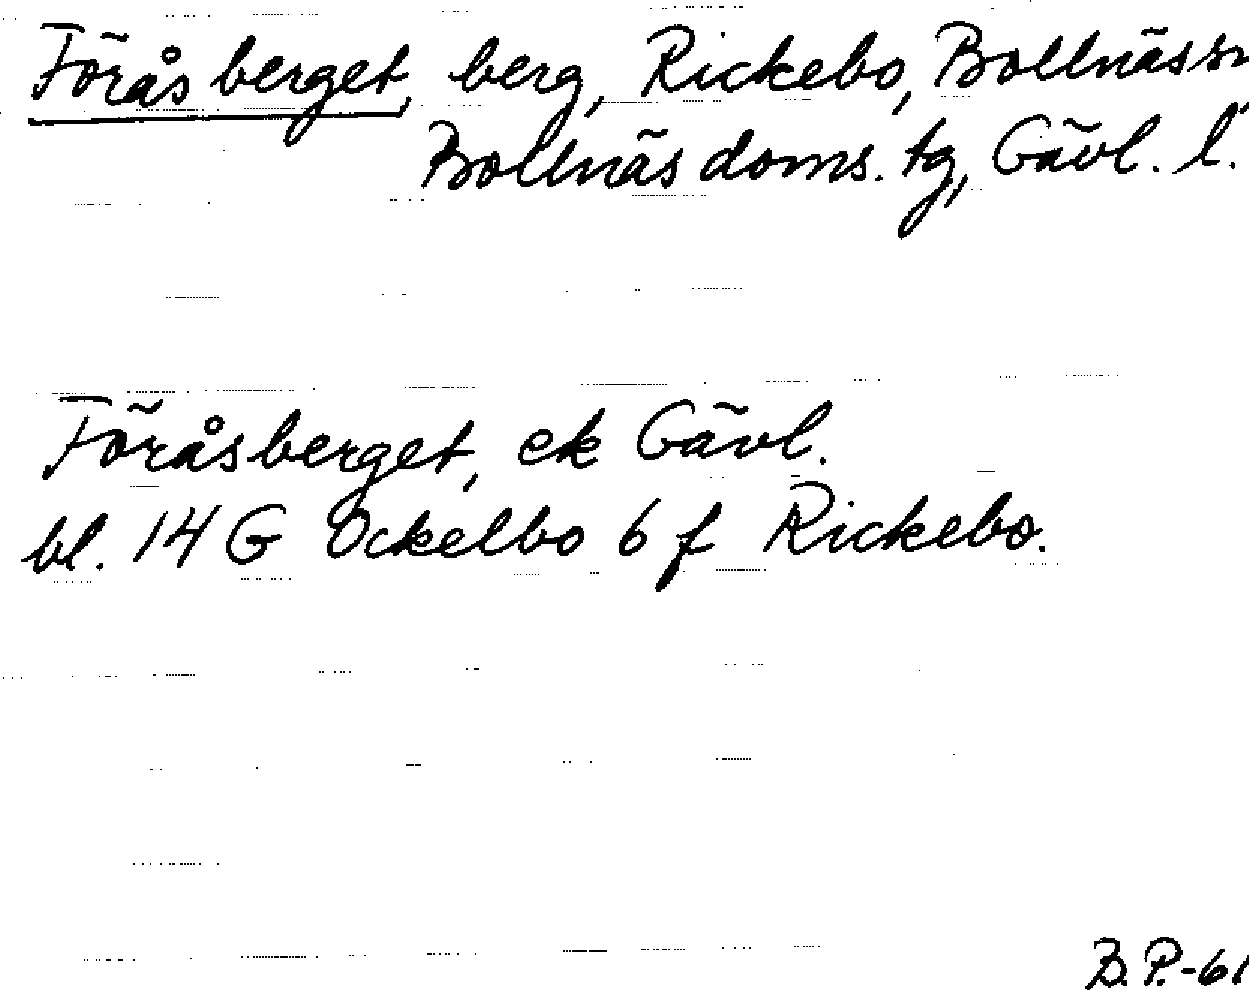 Föråsberget, berg, Rickebo, Bollnässn
Bollnäs doms. tg, Gävl. l.
Föråsberget, ek Gävl.
bl. 14 G Ockelbo 6 f Rickebo.
B.P.-61